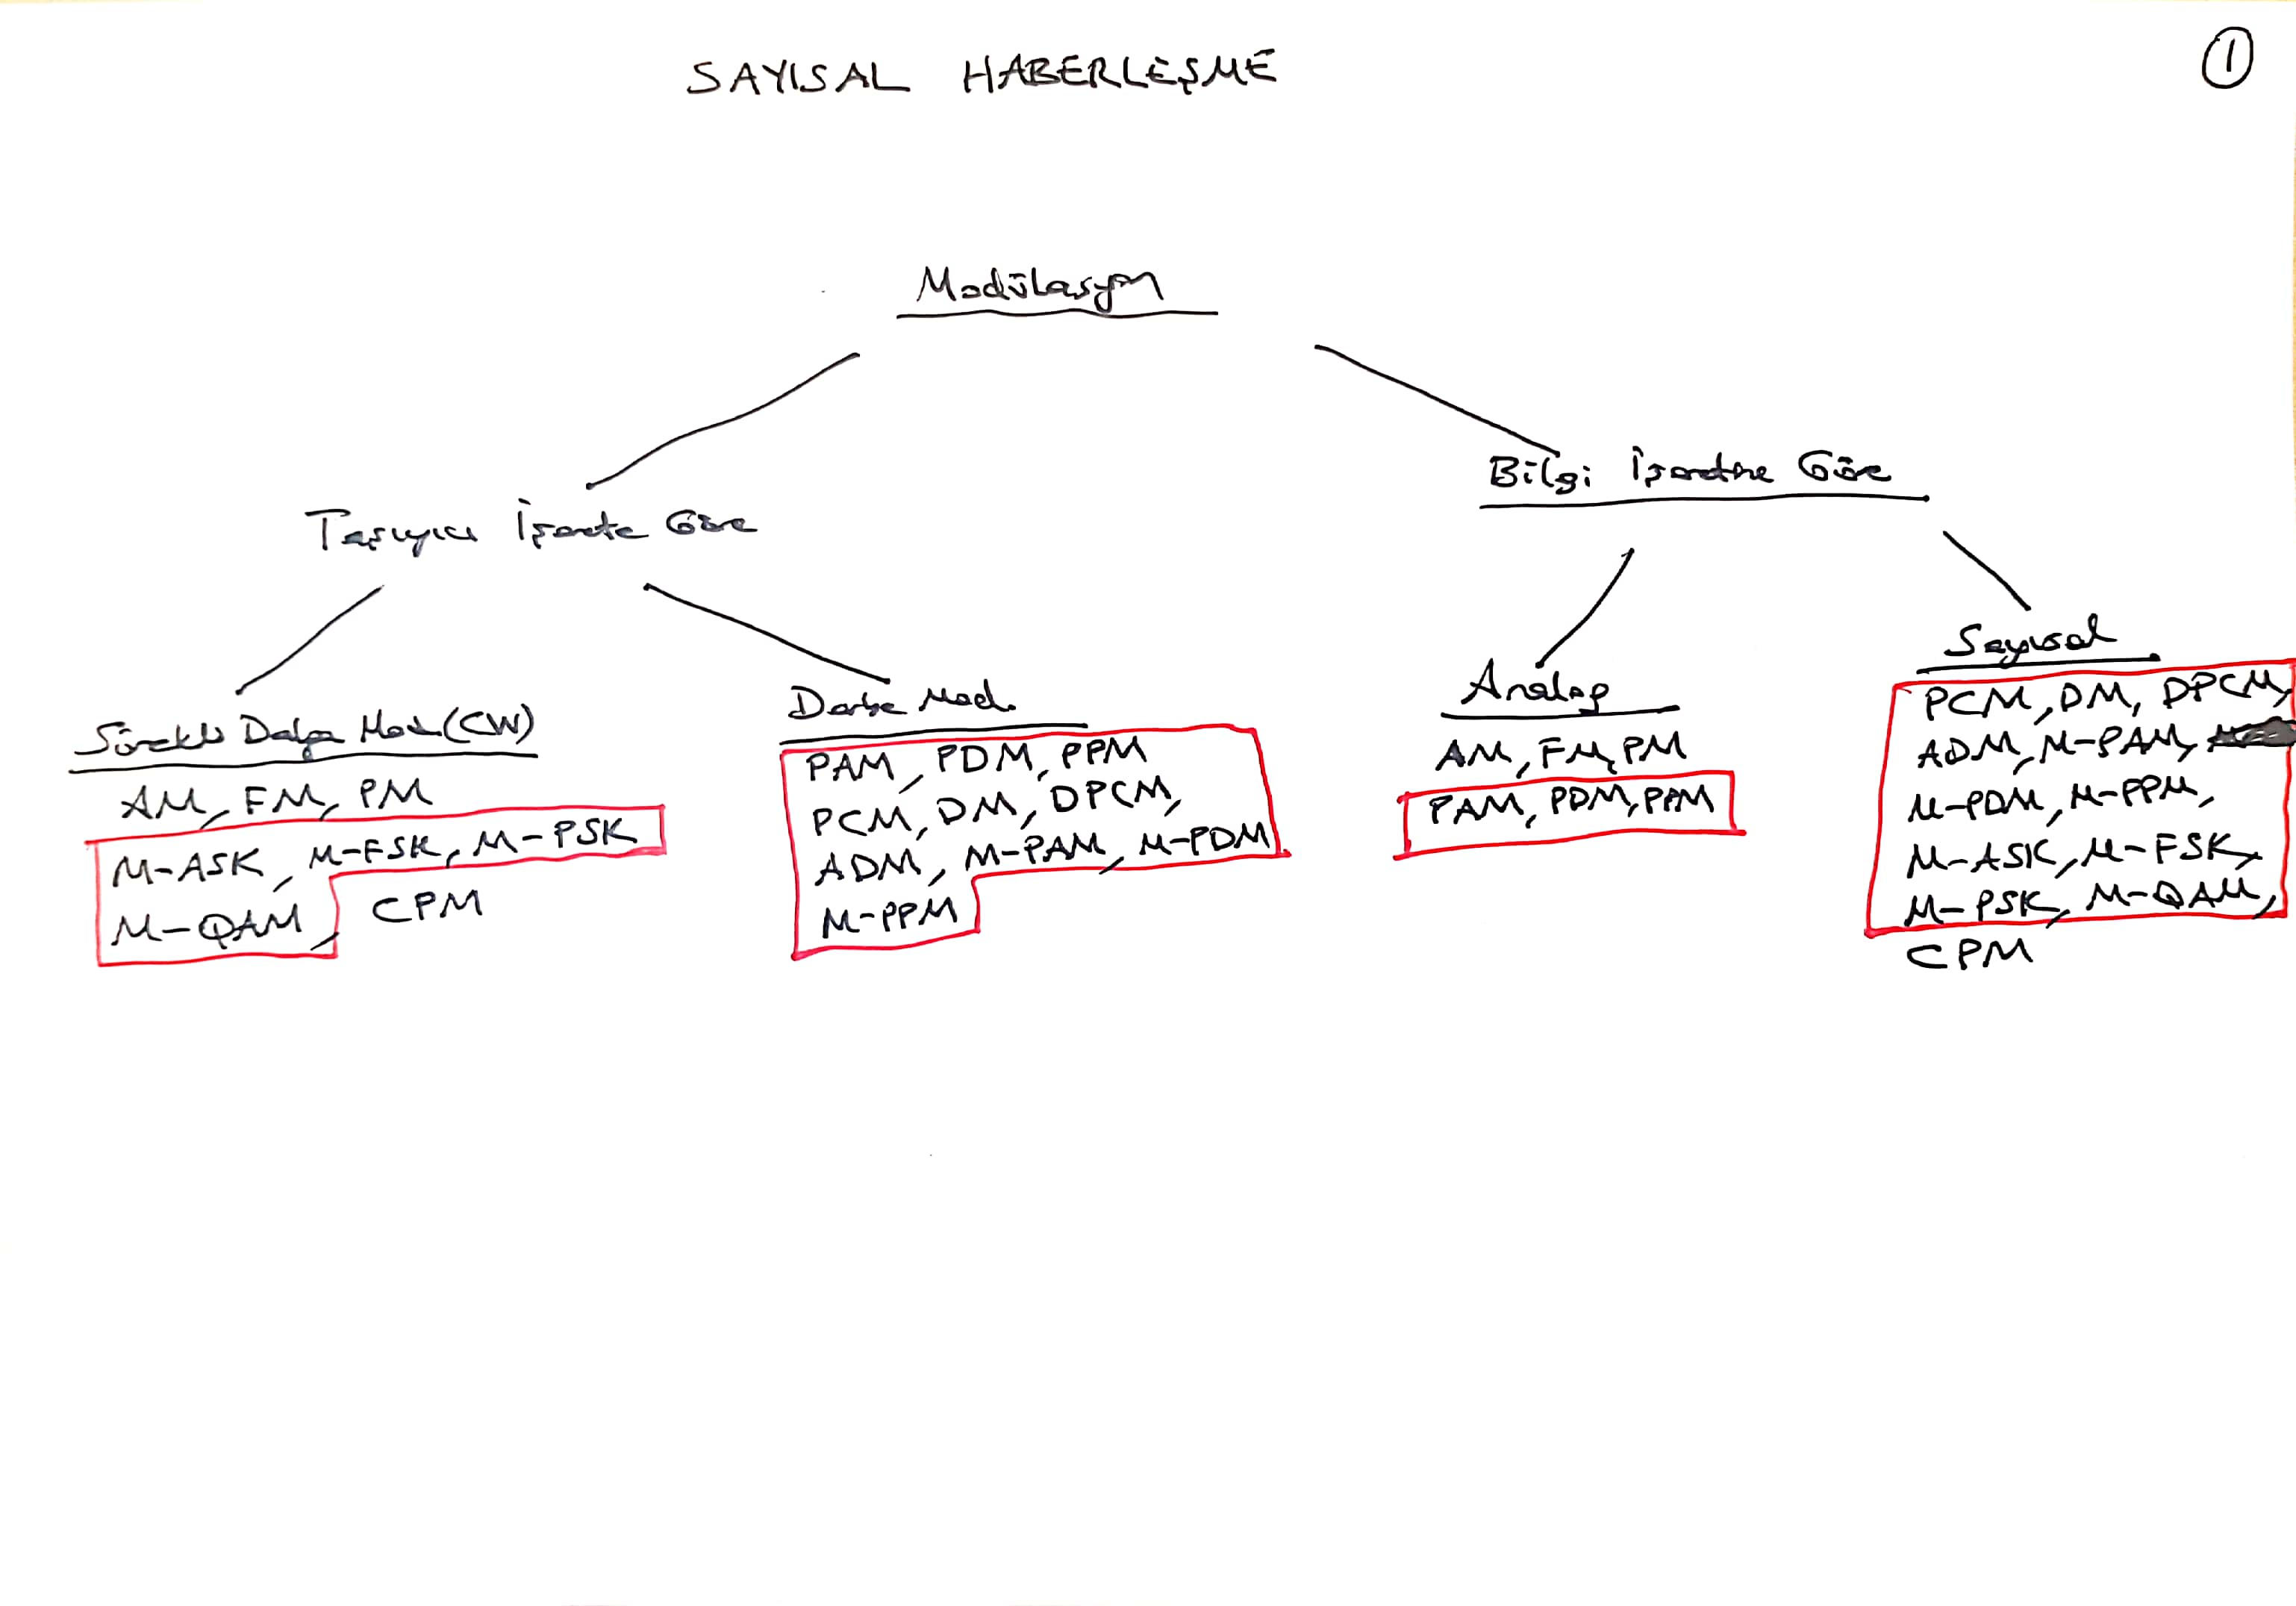 SAYISAL HABERLEŞME
1
Modülasyon
Bilgi İşaretine Göre
Taşıyıcı İşarete Göre
Sürekli Dalga Mod. (CW)
AM, FM, PM
M-ASK, M-FSK, M-PSK
M-QAM, CPM
Darbe Mod.
PAM, PDM, PPM
PCM, DM, DPCM,
ADM, M-PAM, M-PDM
M-PPM
Analog
AM, FM, PM
PAM, PDM, PPM
Sayısal
PCM, DM, DPCM,
ADM, M-PAM,
M-PDM, M-PPM,
M-ASK, M-FSK,
M-PSK, M-QAM,
CPM